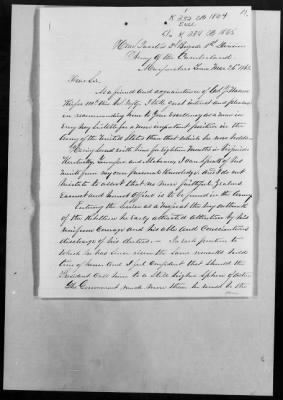 K 234 CB 1864
Encl
K 234 CB 1865
Head Quarters 2d Brigade 1st Division
Army of the Cumberland
Murfreesboro Tenn Mar 26th 1863
Dear Sir
As a friend and acquaintance of Col J Warren
Keifer 110th Ohio Vol Infty I take great interest and pleasure
in recommending him to your excellency as a man in
every way suitable for a more important position in the
army of the United States than that which he now holds
Being with him for eighteen months in Virginia
Kentucky, Tennessee and Alabama, I can speak of his
merits from my own personal knowledge, and I do not
hesitate to assert that no more faithful, zealous
earnest and honest officer is to be found in the army
Entering the service as a Major at the very outbreak
of the Rebellion he early attracted attention by his
uniform courage and his able and conscientious
discharge of his duties — In each position to
which he has since risen the same remarks hold
true of him and I feel confident that should the
President call him to a still higher sphere of duties
the Government, much more than he would be the